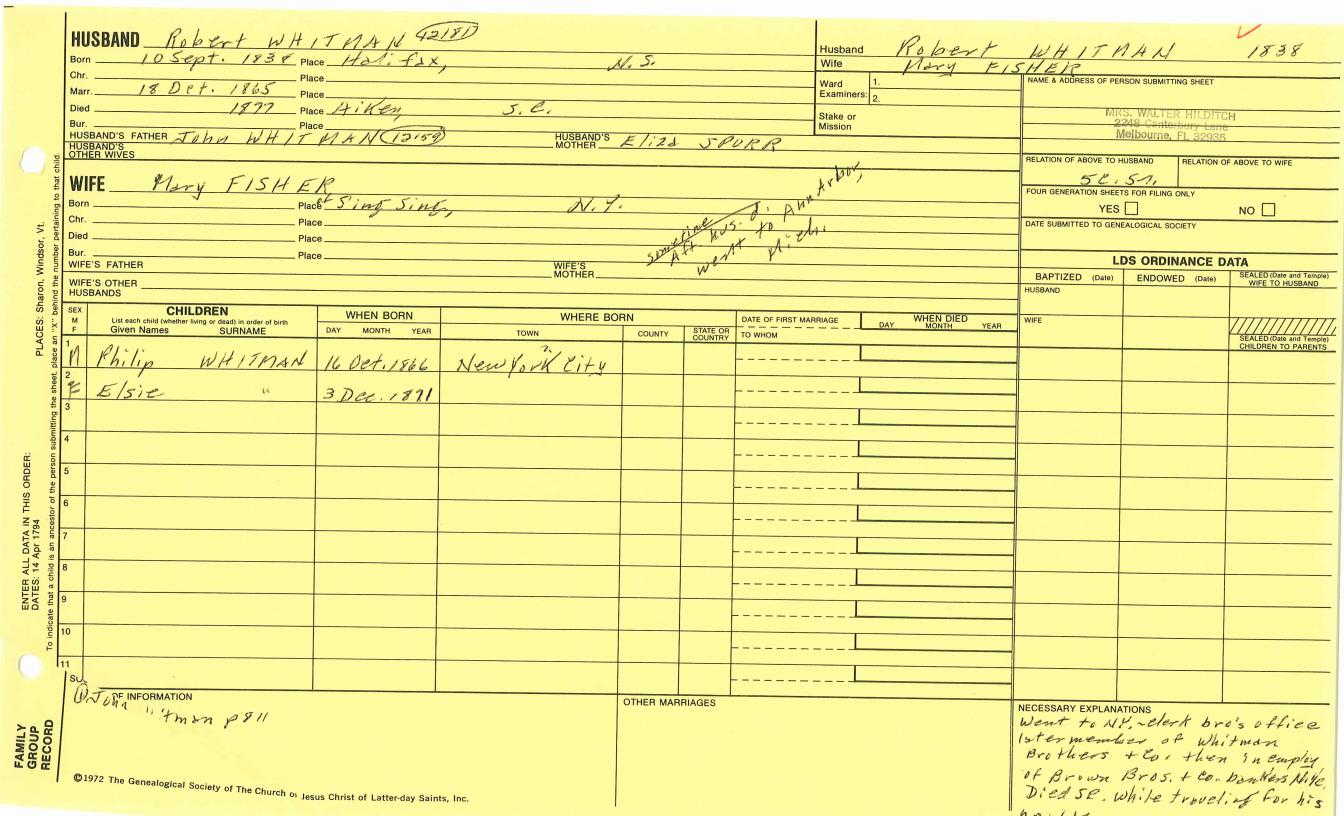 HUSBAND Robert WHITMAN 12181
Born 10 Sept. 1838 Place Halifax, N.S.
Chr. Place
Marr. 18 Oct. 1865 Place
Died 1877 Place Aiken, S.C.
Bur. Place
HUSBAND'S FATHER John WHITMAN (12159) HUSBAND'S MOTHER Eliza SPURR
HUSBAND'S OTHER WIVES
WIFE Mary FISHER
Born Place of Sing Sing, N.Y.
Chr. Place
Died Place
Bur. Place
sometime
Aft hus. d.
went to Ann Arbor,
Mich.
WIFE'S FATHER WIFE'S MOTHER
WIFE'S OTHER HUSBANDS
Husband Robert WHITMAN 1838
Wife Mary FISHER
Ward Examiners: 1.
2.
Stake or Mission
NAME & ADDRESS OF PERSON SUBMITTING SHEET
MRS. WALTER HILDITCH
2248 Canterbury Lane
Melbourne, FL 32935
RELATION OF ABOVE TO HUSBAND RELATION OF ABOVE TO WIFE
FOUR GENERATION SHEETS FOR FILING ONLY
YES NO
DATE SUBMITTED TO GENEALOGICAL SOCIETY
LDS ORDINANCE DATA
BAPTIZED (Date) ENDOWED (Date) SEALED (Date and Temple) WIFE TO HUSBAND
HUSBAND
WIFE
SEALED (Date and Temple) CHILDREN TO PARENTS
SEX M F
CHILDREN
List each child (whether living or dead) in order of birth
Given Names SURNAME
WHEN BORN
DAY MONTH YEAR
WHERE BORN
TOWN COUNTY STATE OR COUNTRY
DATE OF FIRST MARRIAGE
TO WHOM
WHEN DIED
DAY MONTH YEAR
1 M Philip WHITMAN 16 Oct. 1866 New York City ?
2 F Elsie " 3 Dec. 1871
3
4
5
6
7
8
9
10
11
OF INFORMATION
① John
itman p811
OTHER MARRIAGES
NECESSARY EXPLANATIONS
Went to N.Y. - clerk bro's office
later member of Whitman
Brothers + Co. then in employ
of Brown Bros. + Co. bankers N.Y.C.
Died SC. while traveling for his
©1972 The Genealogical Society of The Church of Jesus Christ of Latter-day Saints, Inc.
PLACES: Sharon, Windsor, Vt.
To indicate that a child is an ancestor of the person submitting the sheet, place an "X" behind the number pertaining to that child.
ENTER ALL DATA IN THIS ORDER:
DATES: 14 Apr 1794
FAMILY
GROUP
RECORD